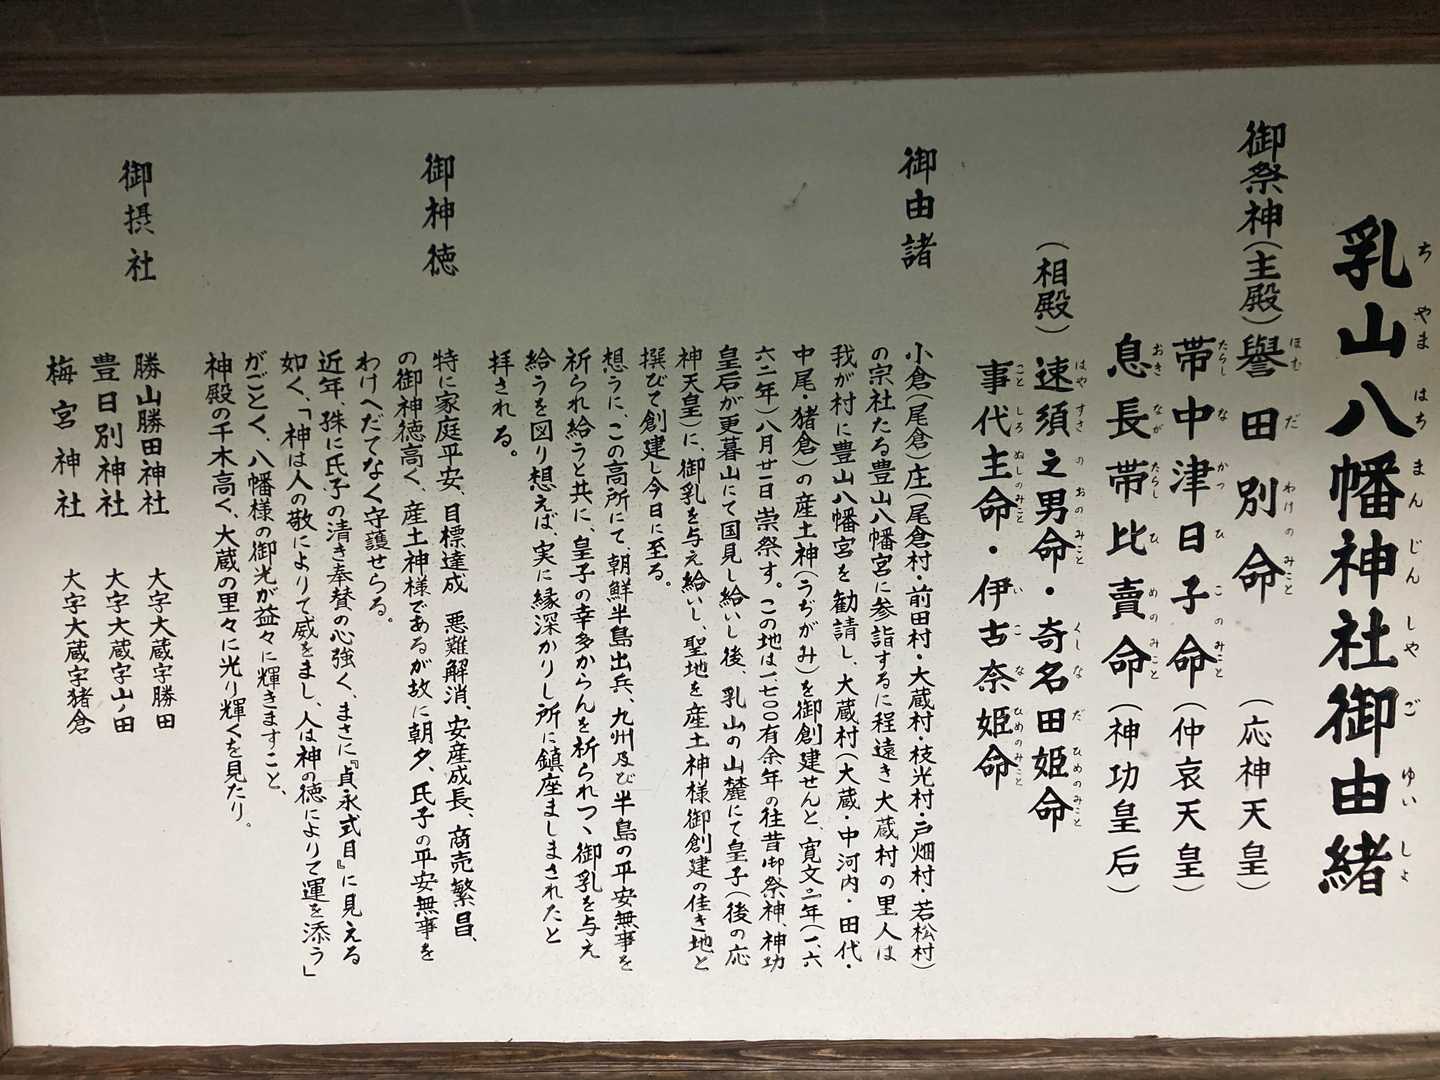 乳山八幡神社御由緒
ちやまはちまんじんしやごゆいしよ
御祭神(主殿)譽田別命(応神天皇)
ほむだわけのみこと
帯中津日子命(仲哀天皇)
たらしなかつひこのみこと
息長帯比賣命(神功皇后)
おきながたらしひめのみこと
(相殿)速須之男命・奇名田姫命
はやすさのおのみこと くしなだひめのみこと
事代主命・伊古奈姫命
ことしろぬしのみこと いこなひめのみこと
御由諸
小倉(尾倉)庄(尾倉村・前田村・大蔵村・枝光村・戸畑村・若松村)
の宗社たる豊山八幡宮に参詣するに程遠き大蔵村の里人は
我が村に豊山八幡宮を勧請し、大蔵村(大蔵・中河内・田代・
中尾・猪倉)の産土神(うぢがみ)を御創建せんと、寛文二年(一、六
六二年)八月廿一日崇祭す。この地は一七〇〇有余年の往昔御祭神、神功
皇后が更暮山にて国見し給いし後、乳山の山麓にて皇子(後の応
神天皇)に、御乳を与え給いし、聖地を産土神様御創建の佳き地と
撰びて創建し今日に至る。
想うに、この高所にて朝鮮半島出兵、九州及び半島の平安無事を
祈られ給うと共に、皇子の幸多からんを祈られつゝ御乳を与え
給うを図り想えば、実に縁深かりし所に鎮座ましまされたと
拝される。
御神徳
特に家庭平安、目標達成 悪難解消、安産成長、商売繁昌、
の御神徳高く、産土神様であるが故に朝夕、氏子の平安無事を
わけへだてなく守護せらる。
近年、殊に氏子の清き奉賛の心強く、まさに『貞永式目』に見える
如く、「神は人の敬によりて威をまし、人は神の徳によりて運を添う」
がごとく、八幡様の御光が益々に輝きますこと、
神殿の千木高く、大蔵の里々に光り輝くを見たり。
御摂社
勝山勝田神社 大字大蔵字勝田
豊日別神社 大字大蔵字山ノ田
梅宮神社 大字大蔵字猪倉